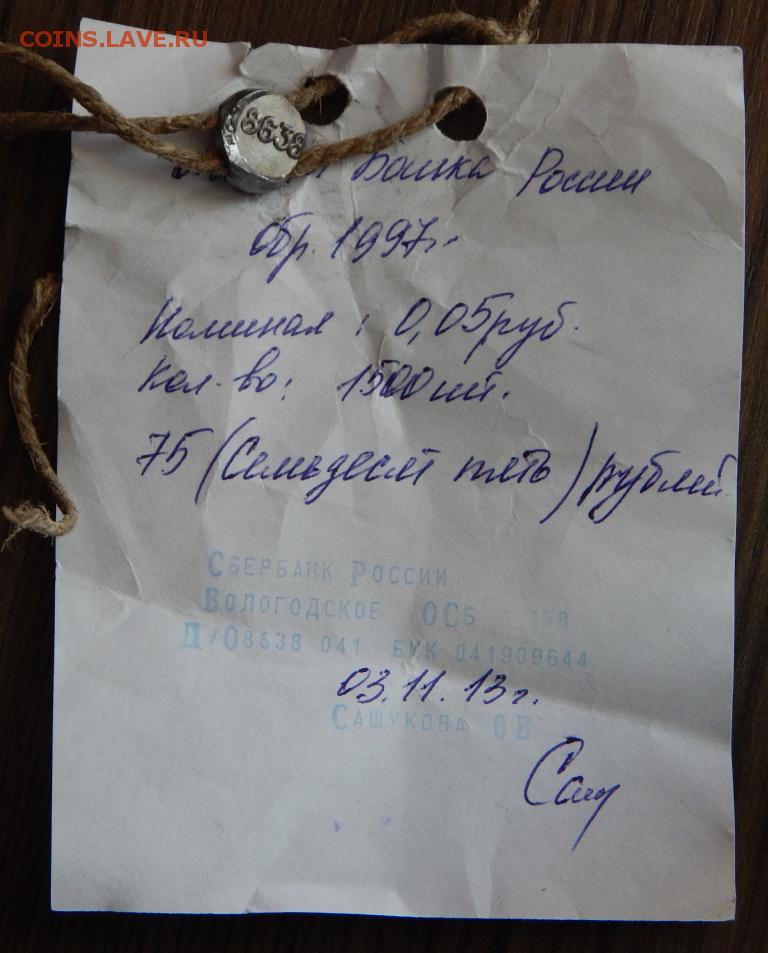 COINS.LAVE.RU
8638
Банка России
Обр. 1997г.
Номинал: 0,05 руб.
Кол-во: 1500 шт.
75 (Семьдесят пять) рублей
СБЕРБАНК РОССИИ
ВОЛОГОДСКОЕ ОСБ
Д/О8638 041 БИК 041909644
03.11.13г.
САШУКОВА ОВ